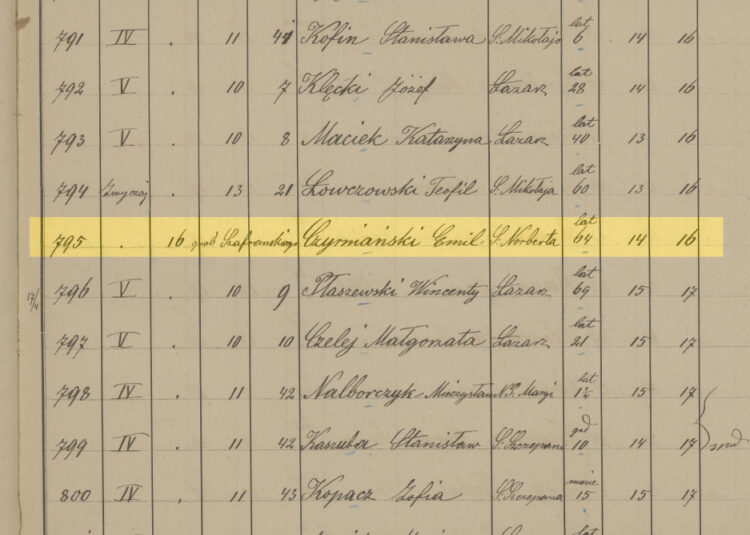 791 IV . 11 41 Kofin Stanisława S. Mikołaja lat 6 14 16
792 V . 10 7 Kłęcki Józef Łazarz lat 28 14 16
793 V . 10 8 Maciek Katarzyna Łazarz lat 40 13 16
794 Zwyczaj . 13 21 Łowczowski Teofil S. Mikołaja lat 60 13 16
795 . 16 grob Szafrańskiego Czyrniański Emil S. Norberta lat 64 14 16
17/4 796 V . 10 9 Ptaszewski Wincenty Łazarz lat 69 15 17
797 V 10 10 Czelej Małgorzata Łazarz lat 21 15 17
798 IV . 11 42 Nalborczyk Mieczysław N.P. Maryi lat 15 17
799 IV . 11 42 Kaszuba Stanisław S. Szczepana god 10 14 17
800 IV . 11 43 Kopacz Zofia S. Szczepana 15 15 17
lat